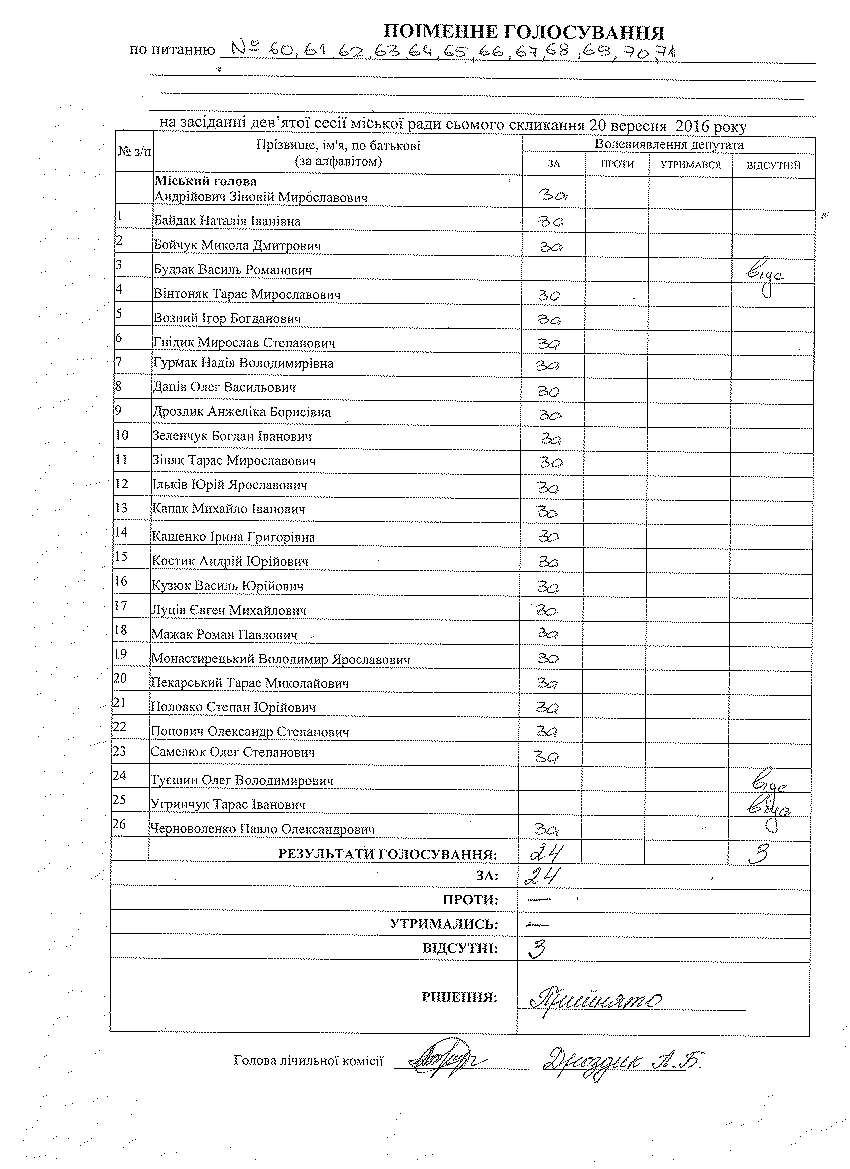 ПОІМЕННЕ ГОЛОСУВАННЯ
по питанню № 60, 61, 62, 63, 64, 65, 66, 67, 68, 69, 70, 71
на засіданні дев'ятої сесії міської ради сьомого скликання 20 вересня 2016 року
№ з/п Прізвище, ім'я, по батькові (за алфавітом) Волевиявлення депутата
ЗА ПРОТИ УТРИМАВСЯ ВІДСУТНІЙ
Міський голова
Андрійович Зіновій Мирославович за
1 Байдак Наталія Іванівна за
2 Бойчук Микола Дмитрович за
3 Будзак Василь Романович відс
4 Вінтоняк Тарас Мирославович за
5 Возний Ігор Богданович за
6 Гнідик Мирослав Степанович за
7 Гурмак Надія Володимирівна за
8 Даців Олег Васильович за
9 Дроздик Анжеліка Борисівна за
10 Зеленчук Богдан Іванович за
11 Зіняк Тарас Мирославович за
12 Ільків Юрій Ярославович за
13 Капак Михайло Іванович за
14 Кашенко Ірина Григорівна за
15 Костик Андрій Юрійович за
16 Кузюк Василь Юрійович за
17 Луців Євген Михайлович за
18 Мажак Роман Павлович за
19 Монастирецький Володимир Ярославович за
20 Пекарський Тарас Миколайович за
21 Половко Степан Юрійович за
22 Попович Олександр Степанович за
23 Самелюк Олег Степанович за
24 Туєшин Олег Володимирович відс
25 Угринчук Тарас Іванович відс
26 Черноволенко Павло Олександрович за
РЕЗУЛЬТАТИ ГОЛОСУВАННЯ: 24 3
ЗА: 24
ПРОТИ: —
УТРИМАЛИСЬ: —
ВІДСУТНІ: 3
РІШЕННЯ: Прийнято
Голова лічильної комісії Дроздик А.Б.